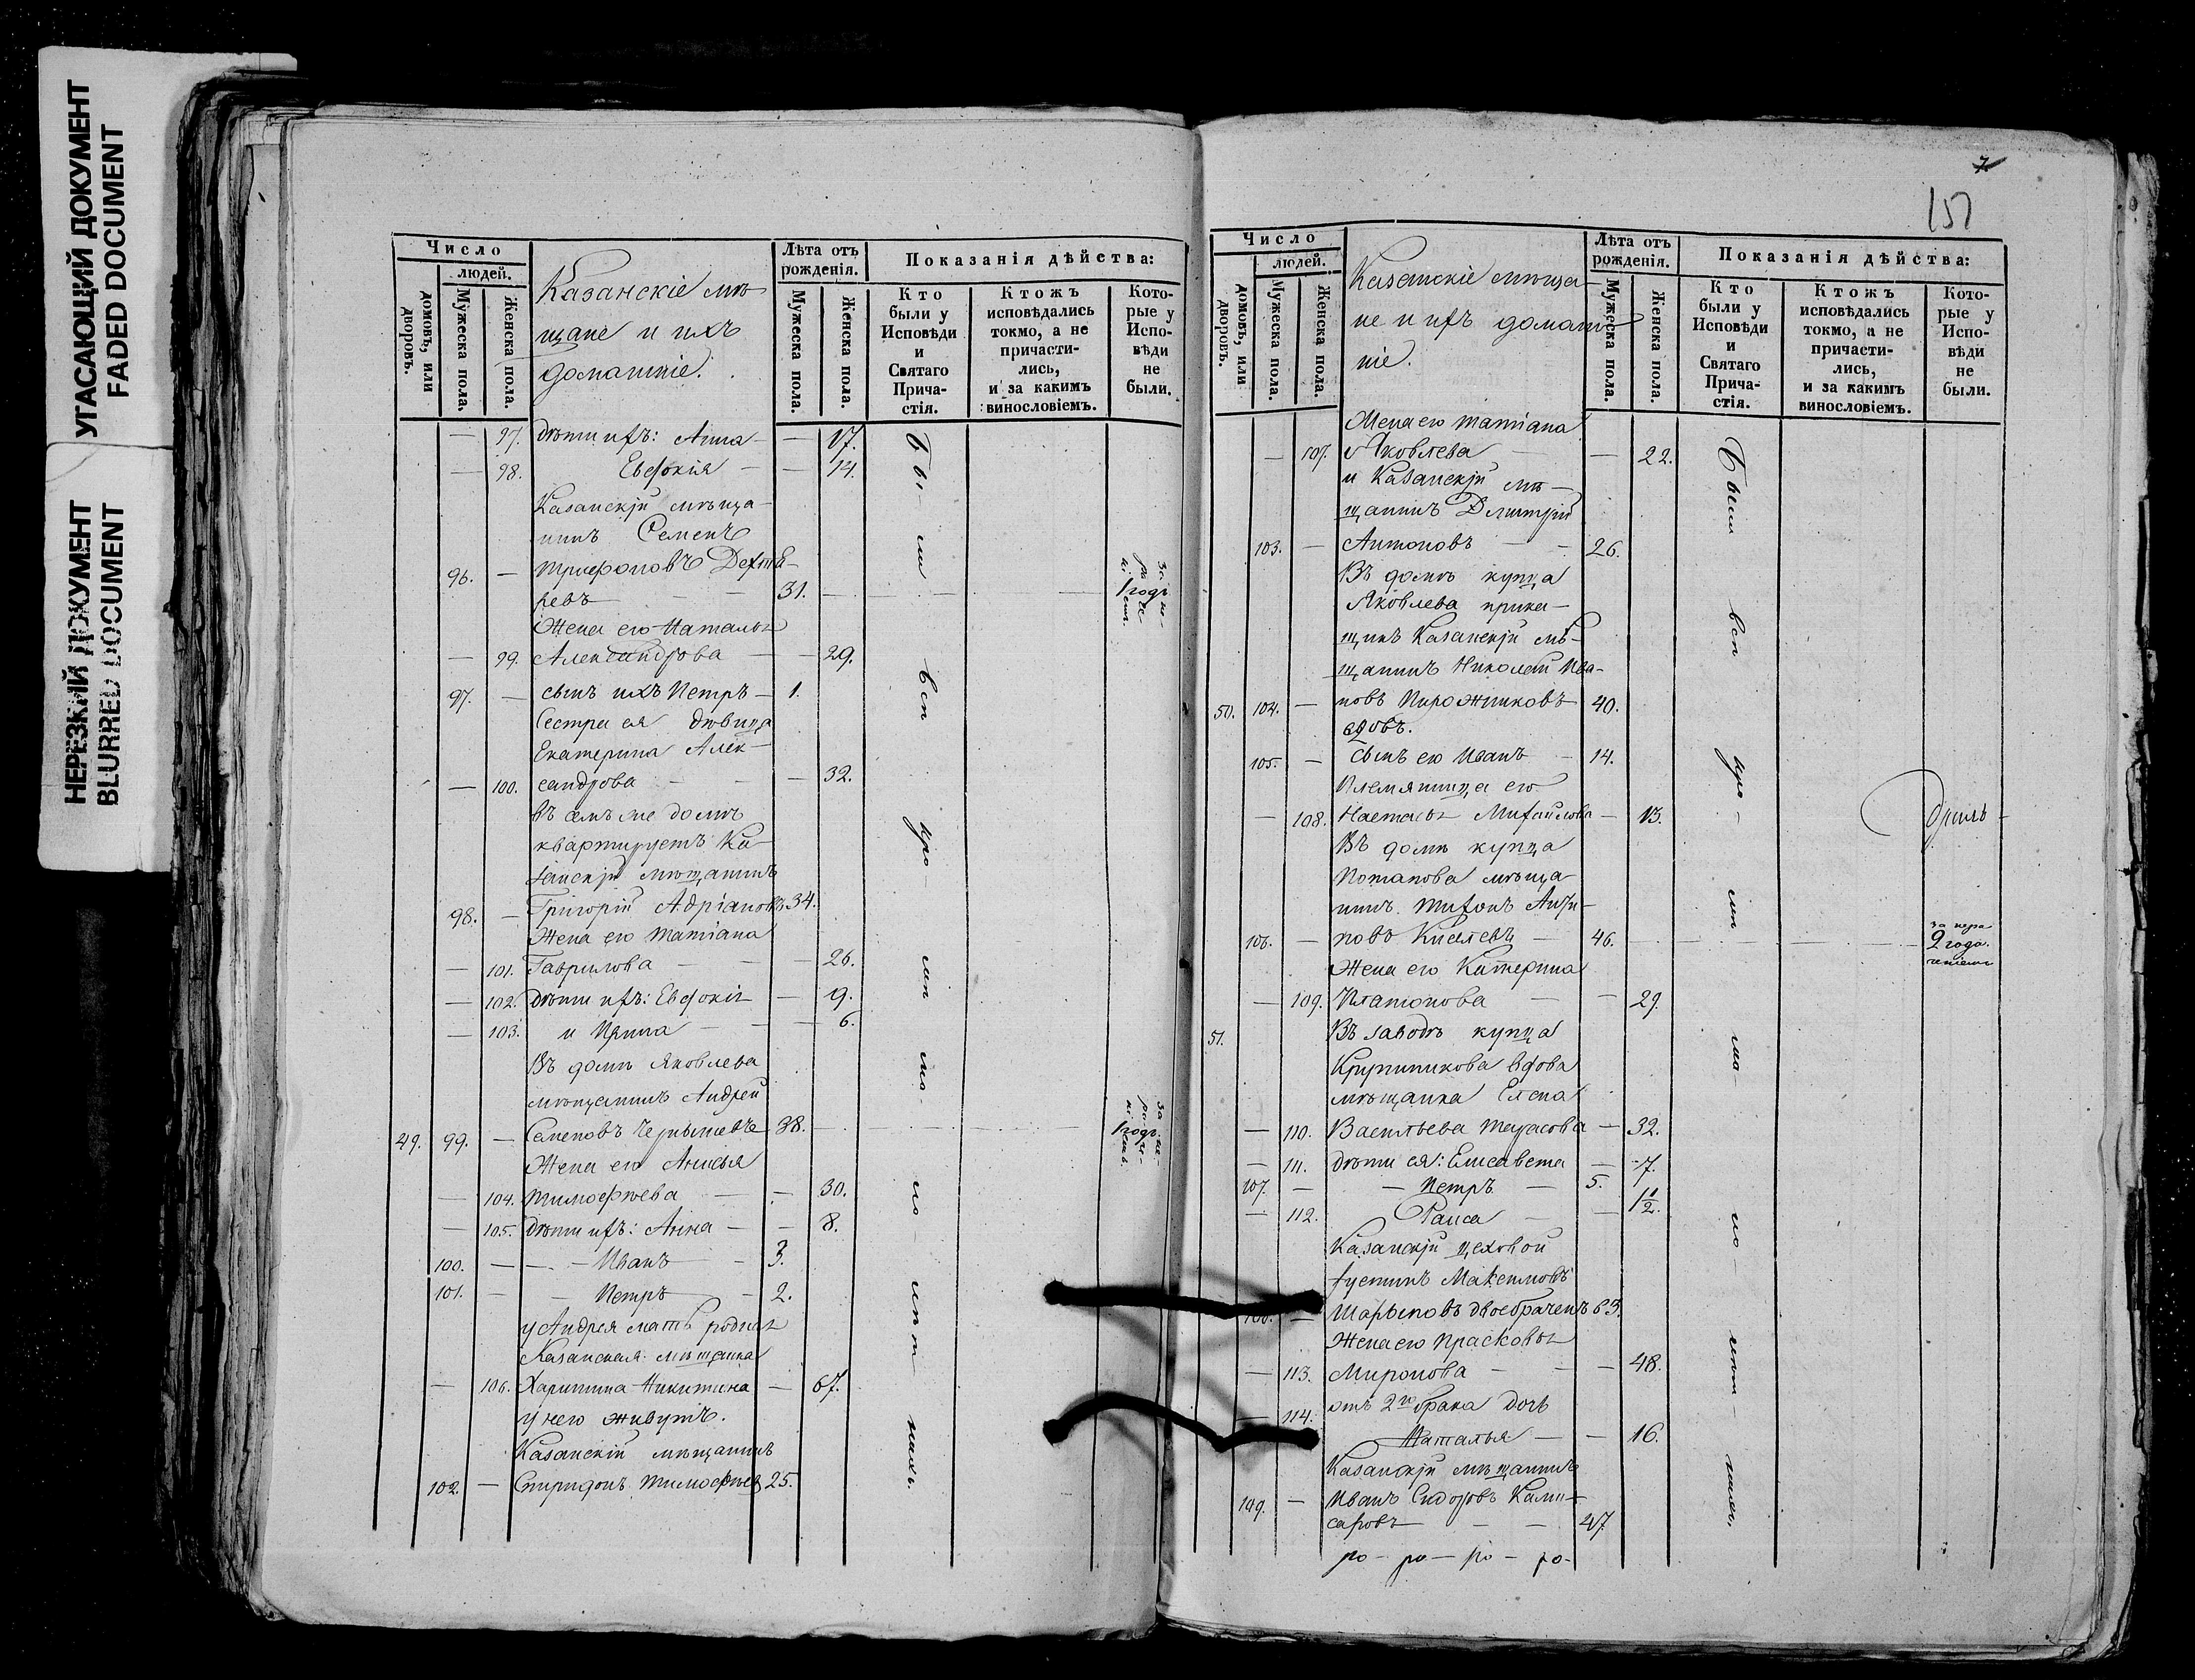 УГАСАЮЩИЙ ДОКУМЕНТ
FADED DOCUMENT
НЕРЕЗКИЙ ДОКУМЕНТ
BLURRED DOCUMENT
Число
людей.
домовъ, или дворовъ.
Мужеска пола.
Женска пола.
Казанскіе мѣ-
щане и ихъ
домашніе.
Лѣта отъ рожденія.
Мужеска пола.
Женска пола.
Показанія дѣйства:
Кто были у Исповѣди и Святаго Прича- стія.
Ктожъ исповѣдались токмо, а не причасти- лись, и за какимъ винословіемъ.
Кото- рые у Испо- вѣди не были.
— 97. Дѣти ихъ: Анна — — 17.
— 98. Евдокія — — 14.
Казанскій мѣща-
нинъ Семенъ
96. — Трифоновъ Дехтя-
ревъ — — 31.
Жена его Наталья
— 99. Александрова — — 29.
97. — сынъ ихъ Петръ — 1.
Сестра ея дѣвица
Екатерина Алек-
— 100. сандрова — — 32.
въ семъ же домѣ
квартируетъ Ка-
занскій мѣщанинъ
98. — Григорій Адріановъ 34.
Жена его Татіана
— 101. Гаврилова — — 26.
— 102. Дѣти ихъ: Евдокія — 9.
— 103. и Ирина — — 6.
Въ домѣ Яковлева
мѣщанинъ Андрей
49. 99. — Семеновъ Чернышевъ 38.
Жена его Анисья
— 104. Тимофѣева — — 30.
— 105. Дѣти ихъ: Анна — — 8.
100. — — Иванъ — 3.
101. — — Петръ — 2.
у Андрея мать родная
Казанская мѣщанка
— 106. Харитина Никитина — 67.
у него живутъ.
Казанскій мѣщанинъ
102. — Спиридонъ Тимофѣевъ 25.
Бы- ли всѣ кро- мѣ мо- ло- лѣт- нихъ.
1 годъ
1 годъ
7
151
Число
людей.
домовъ, или дворовъ.
Мужеска пола.
Женска пола.
Казанскіе мѣща-
не и ихъ домаш-
ніе.
Лѣта отъ рожденія.
Мужеска пола.
Женска пола.
Показанія дѣйства:
Кто были у Исповѣди и Святаго Прича- стія.
Ктожъ исповѣдались токмо, а не причасти- лись, и за какимъ винословіемъ.
Кото- рые у Испо- вѣди не были.
Жена его Татіана
— 107. Яковлева — — 22.
и Казанскій мѣ-
щанинъ Дмитрій
103. — Антоновъ — — 26.
Въ домѣ купца
Яковлева прика-
щикъ Казанскій мѣ-
щанинъ Николай Ива-
50. 104. — новъ Пирожниковъ 40.
вдовъ.
105. — Сынъ его Иванъ — 14.
Племянница его
— 108. Настасья Михайлова — 13.
Въ домѣ купца
Потапова мѣща-
нинъ Тихонъ
106. — новъ Киселевъ — 46.
Жена его Катерина
— 109. Платонова — — 29.
51. Въ заводѣ купца
Крупеникова вдова
мѣщанка Елена
— 110. Васильева Тарасова — 32.
— 111. Дѣти ея: Елисавета — 7.
107. — — Петръ — 5.
— 112. Раиса — — 1 1/2.
Казанскій цеховой
Іустинъ Максимовъ
108. — Шарыповъ двоебраченъ 63.
Жена его Прасковья
— 113. Миронова — — 48.
отъ 2го брака дочь
— 114. Наталья — — 16.
Казанскій мѣщанинъ
109. — Иванъ Сидоровъ Коми-
саровъ — — 47.
ро — ро — ро — ро-
Были всѣ кро- мѣ ма- ло- лѣт- нихъ.
за нера
2 года.
ченіемъ